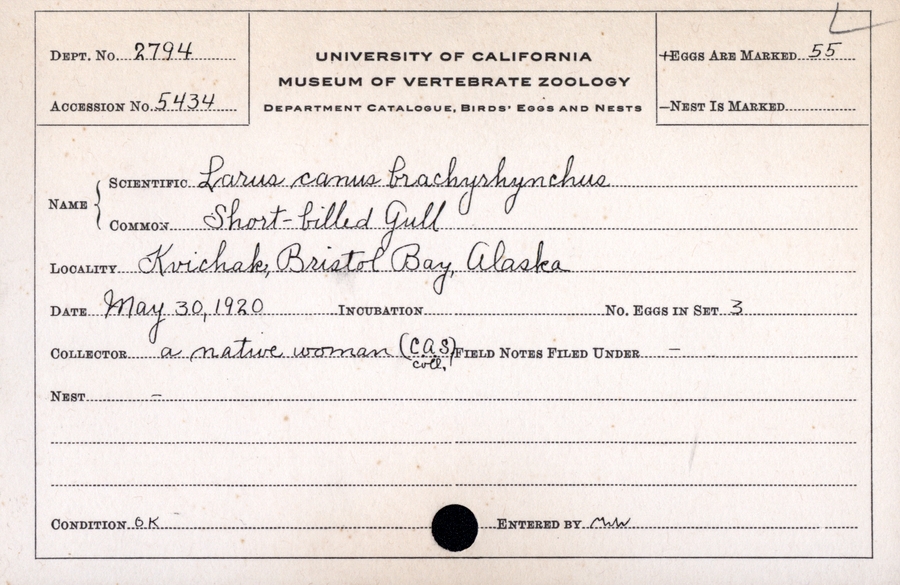 Dept. No. 2794
Accession No. 5434
UNIVERSITY OF CALIFORNIA
MUSEUM OF VERTEBRATE ZOOLOGY
Department Catalogue, Birds' Eggs and Nests
Eggs Are Marked 55
Nest Is Marked
Name
Scientific Larus canus brachyrhynchus
Common Short-billed Gull
Locality Kvichak, Bristol Bay, Alaska
Date May 30, 1920 Incubation No. Eggs in Set 3
Collector a native woman (CAS) Field Notes Filed Under –
coll.
Nest –
Condition OK Entered by